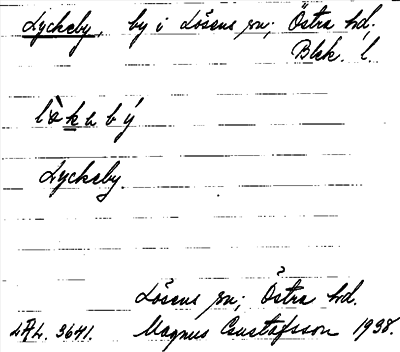 Lyckeby, by i Lösens sn; Östra hd.
Blek. l.
Lyckeby.
Lösens sn; Östra hd.
LAL. 3641. Magnus Gustafsson 1938.